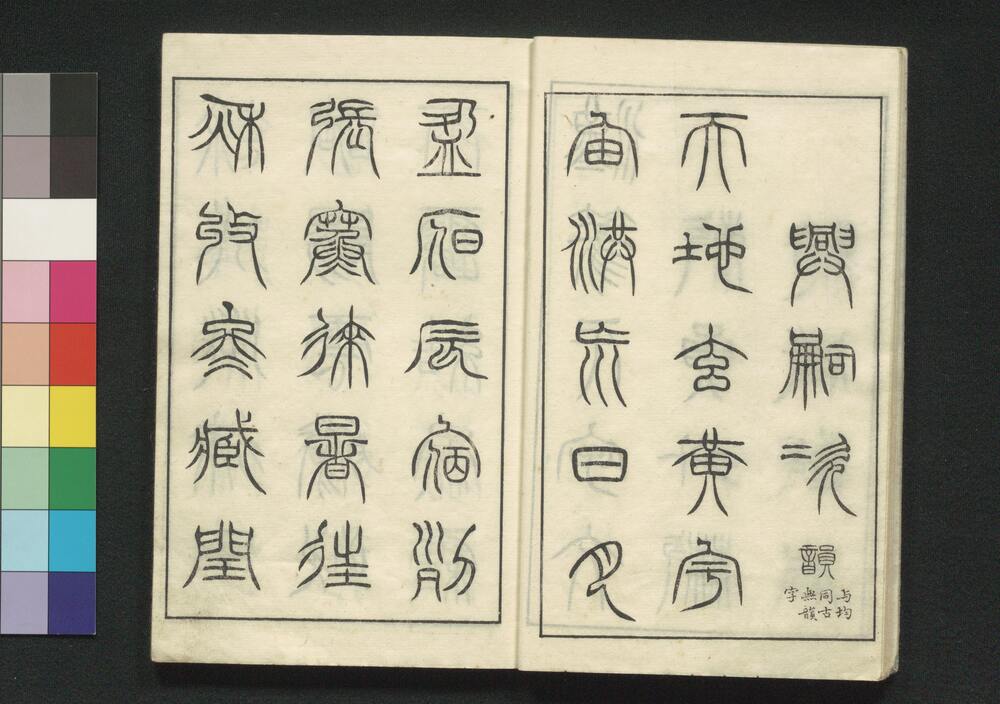 興嗣次韻
与均
同古
無韻
字
天地玄黃宇
宙洪荒日月
盈昃辰宿列
張寒來暑往
秋收冬藏閏